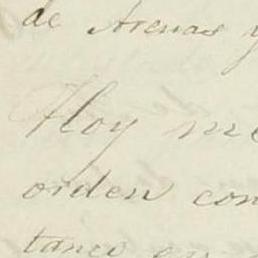 de Arenas y
Hoy me
orden con
tanco en